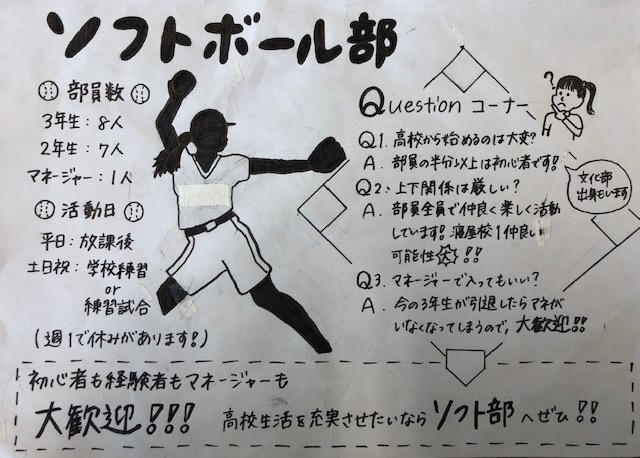 ソフトボール部
部員数
3年生：8人
2年生：7人
マネージャー：1人
活動日
平日：放課後
土日祝：学校練習
or
練習試合
(週1で休みがあります!)
Question コーナー
Q1. 高校から始めるのは大変?
A. 部員の半分以上は初心者です!
文化部
出身もいます
Q2. 上下関係は厳しい?
A. 部員全員で仲良く楽しく活動
しています! 寝屋校1仲良い
可能性大!!
Q3. マネージャーで入ってもいい?
A. 今の3年生が引退したらマネが
いなくなってしまうので、大歓迎!!
初心者も経験者もマネージャーも
大歓迎!!! 高校生活を充実させたいなら ソフト部 へぜひ!!